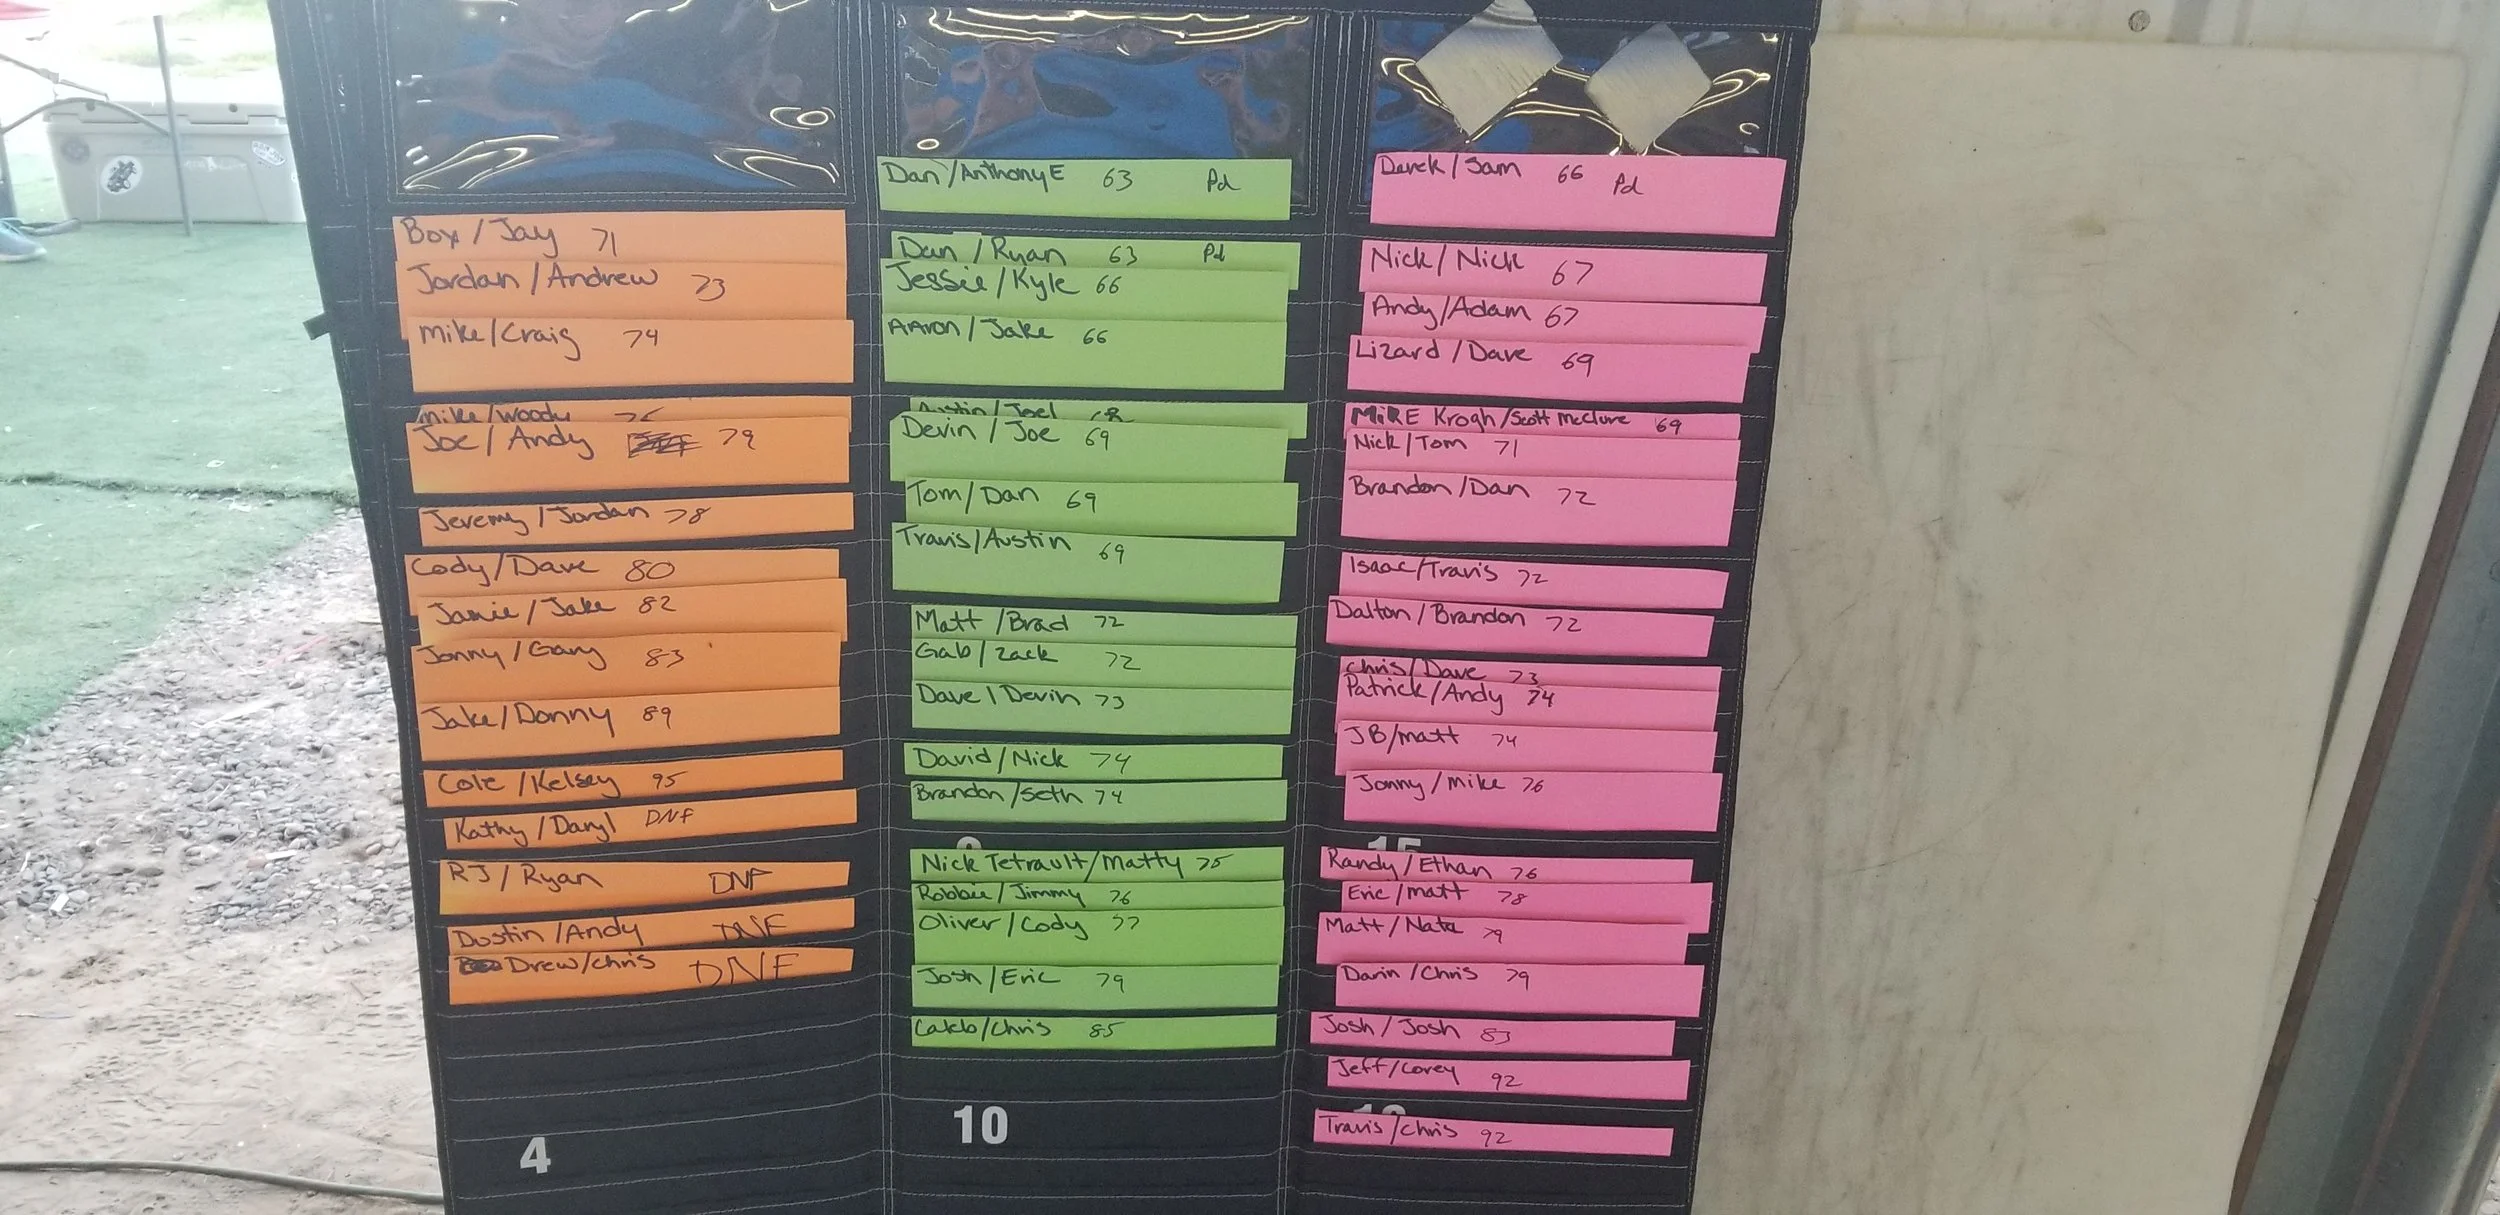 Box/Jay 71
Jordan/Andrew 73
Mike/Craig 74
Mike/Woody
Joe/Andy 79
Jeremy/Jordan 78
Cody/Dave 80
Jamie/Jake 82
Jonny/Gary 83
Jake/Donny 89
Cole/Kelsey 95
Kathy/Daryl DNF
RJ/Ryan DNF
Dustin/Andy DNF
Drew/Chris DNF
4
Dan/Anthony E 63 Pd
Dan/Ryan 63 Pd
Jessie/Kyle 66
AAron/Jake 66
Austin/Joel 68
Devin/Joe 69
Tom/Dan 69
Travis/Austin 69
Matt/Brad 72
Gab/Zack 72
Dave/Devin 73
David/Nick 74
Brandon/Seth 74
Nick Tetrault/Matty 75
Robbie/Jimmy 76
Oliver/Cody 77
Josh/Eric 79
Caleb/Chris 85
10
Derek/Sam 66 Pd
Nick/Nick 67
Andy/Adam 67
Lizard/Dave 69
MiKE Krogh/Scott McClure 69
Nick/Tom 71
Brandon/Dan 72
Isaac/Travis 72
Dalton/Brandon 72
Chris/Dave 73
Patrick/Andy 74
JB/Matt 74
Jonny/Mike 76
15
Randy/Ethan 76
Eric/Matt 78
Matt/Nate 79
Darin/Chris 79
Josh/Josh 83
Jeff/Corey 92
Travis/Chris 92